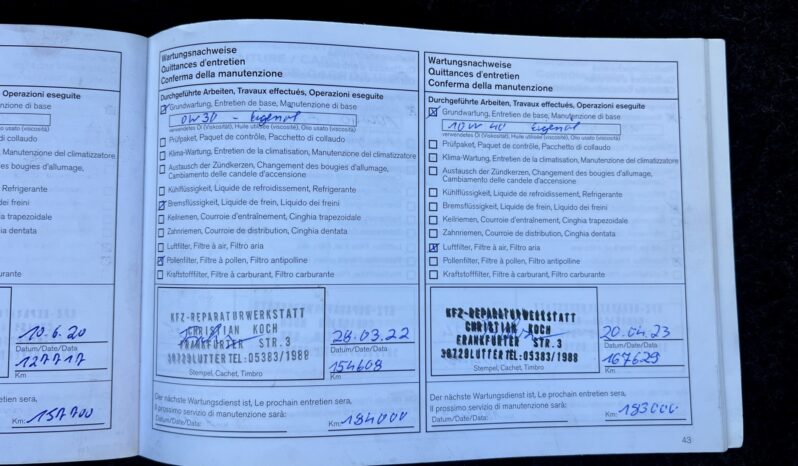 Operazioni eseguite
nzione di base
o usato (viscosità)
di collaudo
, Manutenzione del climatizzatore
es bougies d'allumage,
Refrigerante
dei freini
a trapezoidale
a dentata
urante
10.6.20
Datum/Date/Data
127717
Km
en sera,
Km: 157700
Wartungsnachweise
Quittances d'entretien
Conferma della manutenzione
Durchgeführte Arbeiten, Travaux effectués, Operazioni eseguite
Grundwartung, Entretien de base, Manutenzione di base
0W30 - Eigenöl
verwendetes Öl (Viskosität), Huile utilisée (viscosité), Olio usato (viscosità)
Prüfpaket, Paquet de contrôle, Pacchetto di collaudo
Klima-Wartung, Entretien de la climatisation, Manutenzione del climatizzatore
Austausch der Zündkerzen, Changement des bougies d'allumage,
Cambiamento delle candele d'accensione
Kühlflüssigkeit, Liquide de refroidissement, Refrigerante
Bremsflüssigkeit, Liquide de frein, Liquido dei freini
Keilriemen, Courroie d'entraînement, Cinghia trapezoidale
Zahnriemen, Courroie de distribution, Cinghia dentata
Luftfilter, Filtre à air, Filtro aria
Pollenfilter, Filtre à pollen, Filtro antipolline
Kraftstofffilter, Filtre à carburant, Filtro carburante
KFZ-REPARATURWERKSTATT
CHRISTIAN KOCH
FRANKFURTER STR.3
38729LUTTER TEL:05383/1988
Stempel, Cachet, Timbro
28.03.22
Datum/Date/Data
154608
Km
Der nächste Wartungsdienst ist, Le prochain entretien sera,
Il prossimo servizio di manutenzione sarà:
Datum/Date/Data:
Km: 184000
Wartungsnachweise
Quittances d'entretien
Conferma della manutenzione
Durchgeführte Arbeiten, Travaux effectués, Operazioni eseguite
Grundwartung, Entretien de base, Manutenzione di base
10W 40 Eigenöl
verwendetes Öl (Viskosität), Huile utilisée (viscosité), Olio usato (viscosità)
Prüfpaket, Paquet de contrôle, Pacchetto di collaudo
Klima-Wartung, Entretien de la climatisation, Manutenzione del climatizzatore
Austausch der Zündkerzen, Changement des bougies d'allumage,
Cambiamento delle candele d'accensione
Kühlflüssigkeit, Liquide de refroidissement, Refrigerante
Bremsflüssigkeit, Liquide de frein, Liquido dei freini
Keilriemen, Courroie d'entraînement, Cinghia trapezoidale
Zahnriemen, Courroie de distribution, Cinghia dentata
Luftfilter, Filtre à air, Filtro aria
Pollenfilter, Filtre à pollen, Filtro antipolline
Kraftstofffilter, Filtre à carburant, Filtro carburante
KFZ-REPARATURWERKSTATT
CHRISTIAN KOCH
FRANKFURTER STR.3
38729LUTTER TEL:05383/1988
Stempel, Cachet, Timbro
20.04.23
Datum/Date/Data
167629
Km
Der nächste Wartungsdienst ist, Le prochain entretien sera,
Il prossimo servizio di manutenzione sarà:
Datum/Date/Data:
Km: 183000
43